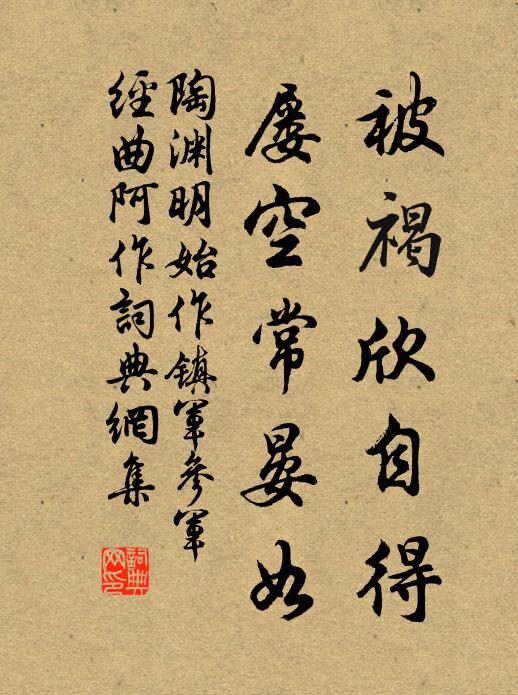 被褐欣自得
屡空常晏如
陶渊明始作镇军参军
經曲阿作詞典網集
詞典網印